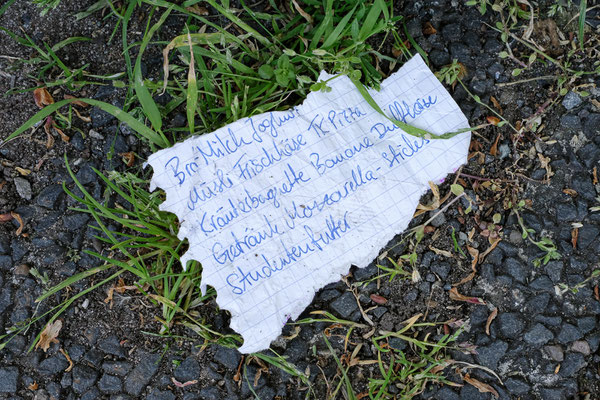 Bro Milch Joghurt
Müsli Frischkäse TK Pizza
Kräuterbaguette Banane Duftkäse
Getränk Mozzarella-Sticks
Studentenfutter